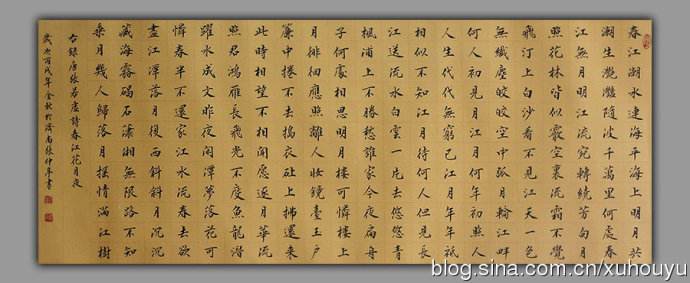 春江潮水連海平海上明月共
潮生灧灧隨波千萬里何處春
江無月明江流宛轉繞芳甸月
照花林皆似霰空裏流霜不覺
飛汀上白沙看不見江天一色
無纖塵皎皎空中孤月輪江畔
何人初見月江月何年初照人
人生代代無窮已江月年年祇
相似不知江月待何人但見長
江送流水白雲一片去悠悠青
楓浦上不勝愁誰家今夜扁舟
子何處相思明月樓可憐樓上
月徘徊應照離人妝鏡臺玉户
簾中捲不去搗衣砧上拂還來
此時相望不相聞願逐月華流
照君鴻雁長飛光不度魚龍潛
躍水成文昨夜閑潭夢落花可
憐春半不還家江水流春去欲
盡江潭落月復西斜斜月沉沉
藏海霧碣石瀟湘無限路不知
乘月幾人歸落月摇情滿江樹
右錄唐張若虛詩春江花月夜
歲次丙戌年金秋於濟南張仲亭書
blog.sina.com.cn/xuhouyu